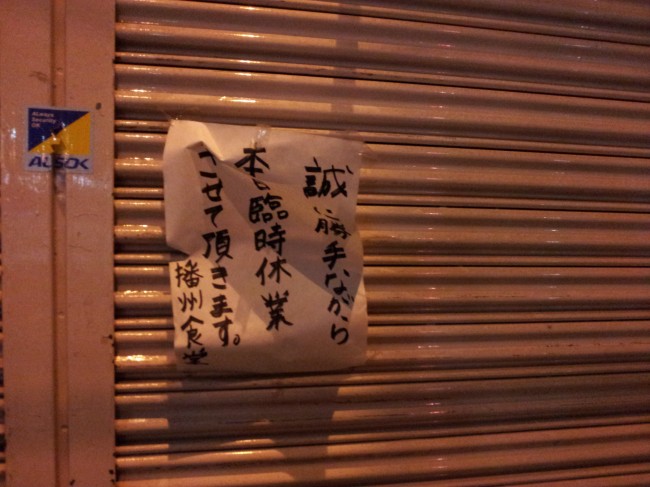 誠に勝手ながら
本日臨時休業
させて頂きます。
播州食堂
Always
Security
OK
ALSOK